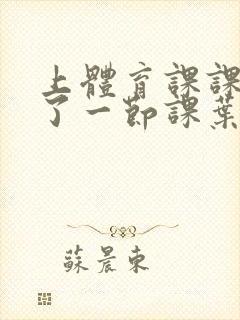 上體育課課
了一節課葉
蘇晨東